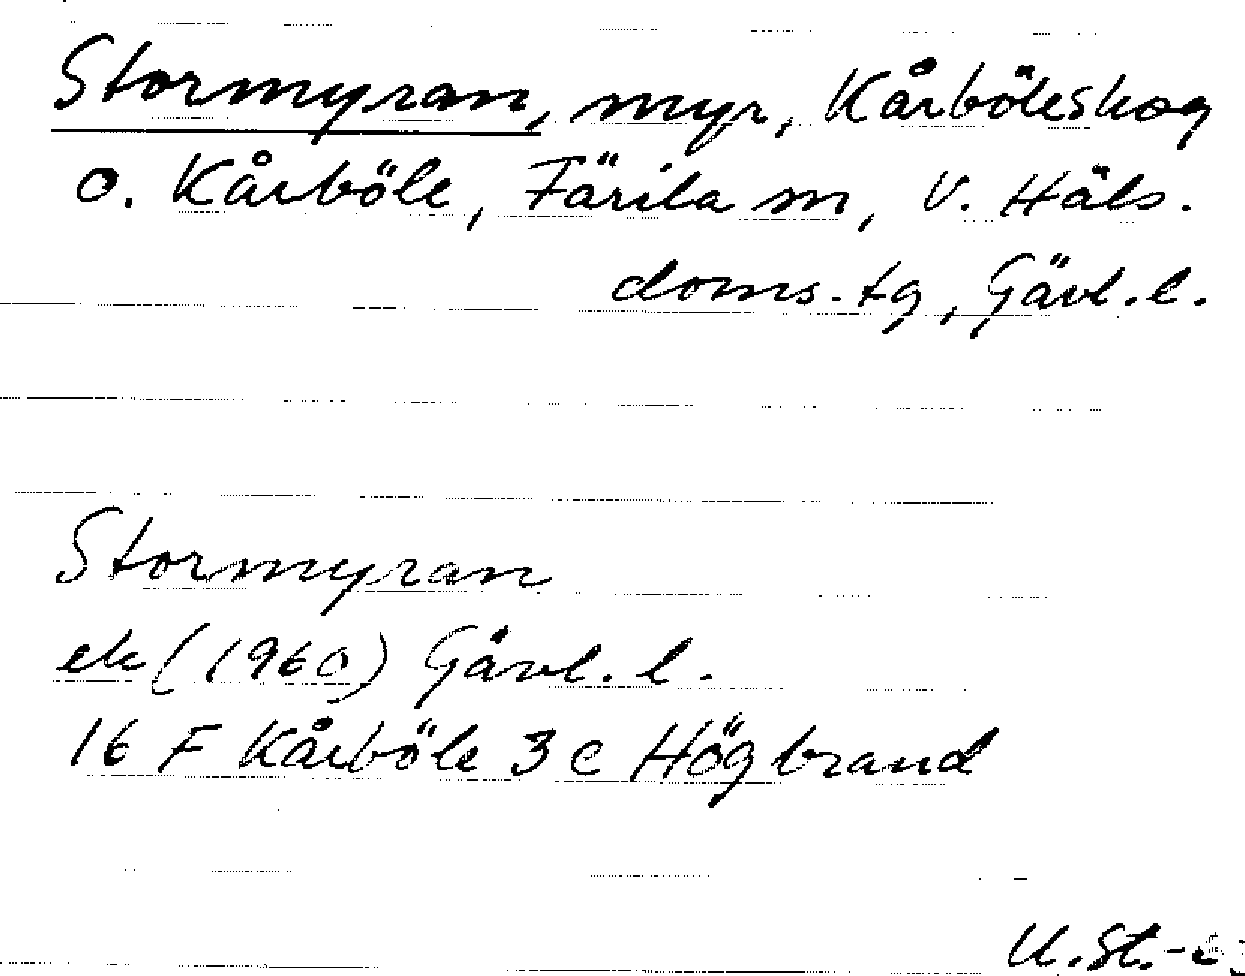 Stormyran, myr, Kårböleskog
o. Kårböle, Färila sn, V. Häls.
doms. tg, Gävl. l.
Stormyran
ek (1960) Gävl. l.
16 F Kårböle 3 c Högbrand
U. St.-